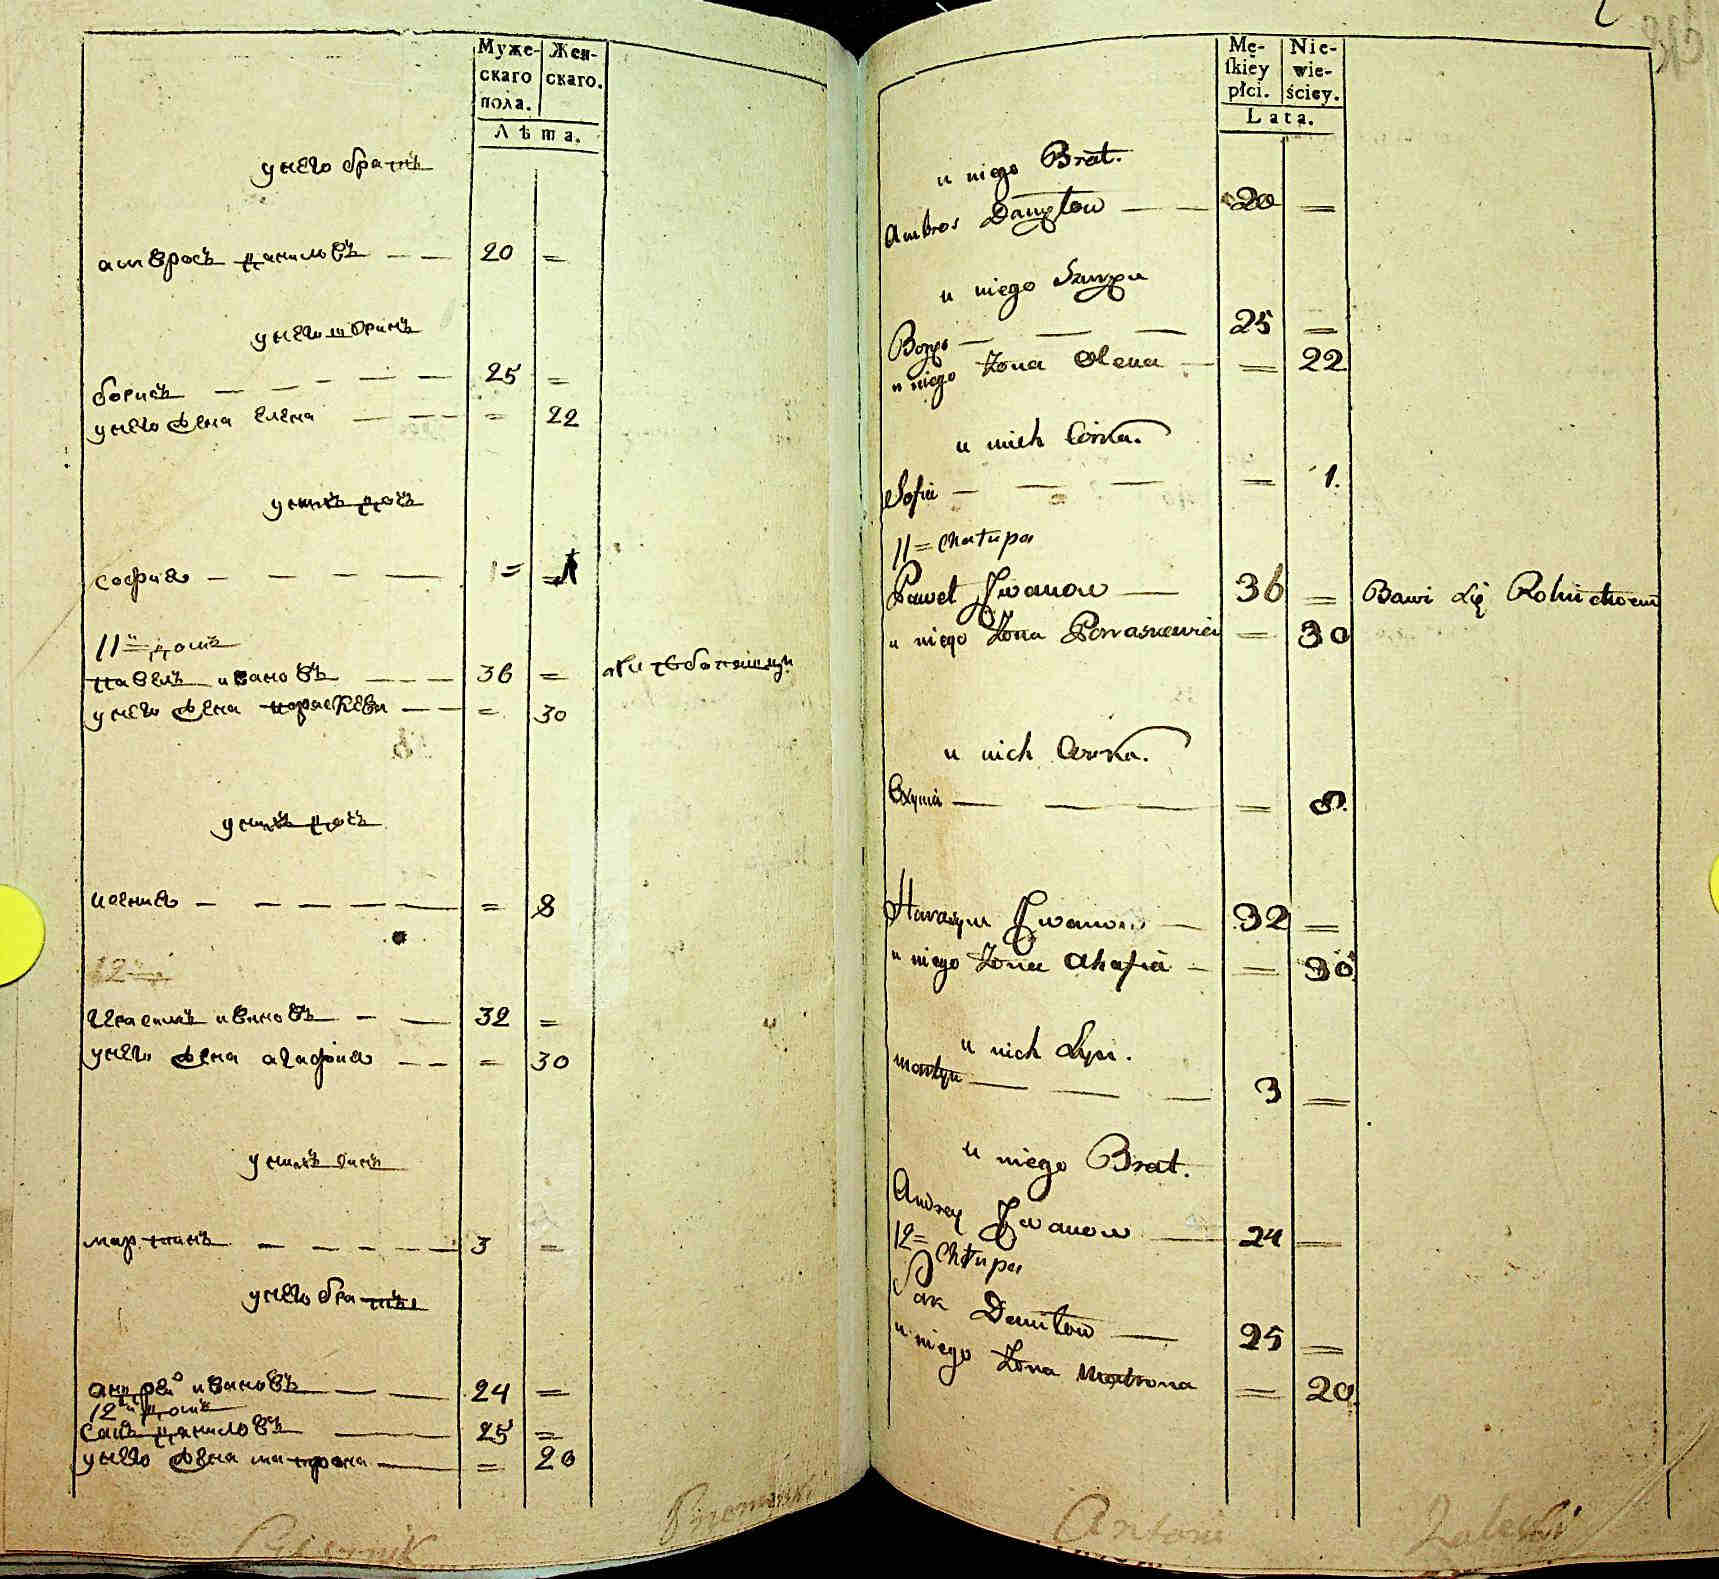 Муже-
скаго
пола.
Жен-
скаго.
Лѣта.
унего братъ
амвросъ даниловъ — — 20 =
унего шуринъ
борисъ — — — — — 25 =
унего жена елена — — — = 22
унихъ дочь
софия — — — — 1 = =
11й домъ
павелъ ивановъ — — — 36 =
унего жена параскева — — = 30
унихъ дочь
ксения — — — — — = 8
12й
Герасимъ ивановъ — — 32 =
унего жена агафия — — = 30
унихъ синъ
мартинъ — — — — — 3 =
унего братъ
андрей ивановъ — — 24 =
12й домъ
саць даниловъ — 25 =
унего жена матрона — = 20
Mę-
skiey
płci.
Nie-
wie-
ściey.
Lata.
u niego Brat.
Ambros Daniłow — — 20 =
u niego Szurÿn
Borÿs — — — 25 =
u niego Żona Olena — = 22
u nich Corka.
Sofia — — — = 1.
11 = Chałupa
Paweł Jwanow — 36 = Bawi się Rolnictwem
u niego Żona Paraskewia = 30
u nich Corka.
— — — = 8.
Harasym Jwanow — 32 =
u niego Żona Ahafia — = 30
u nich Syn.
Martyn — — — 3 =
u niego Brat.
Andrey Jwanow — 24 =
12 = Chałupa
Daniłow — 25 =
u niego Żona Matrona = 20.
Antoni Zaleski